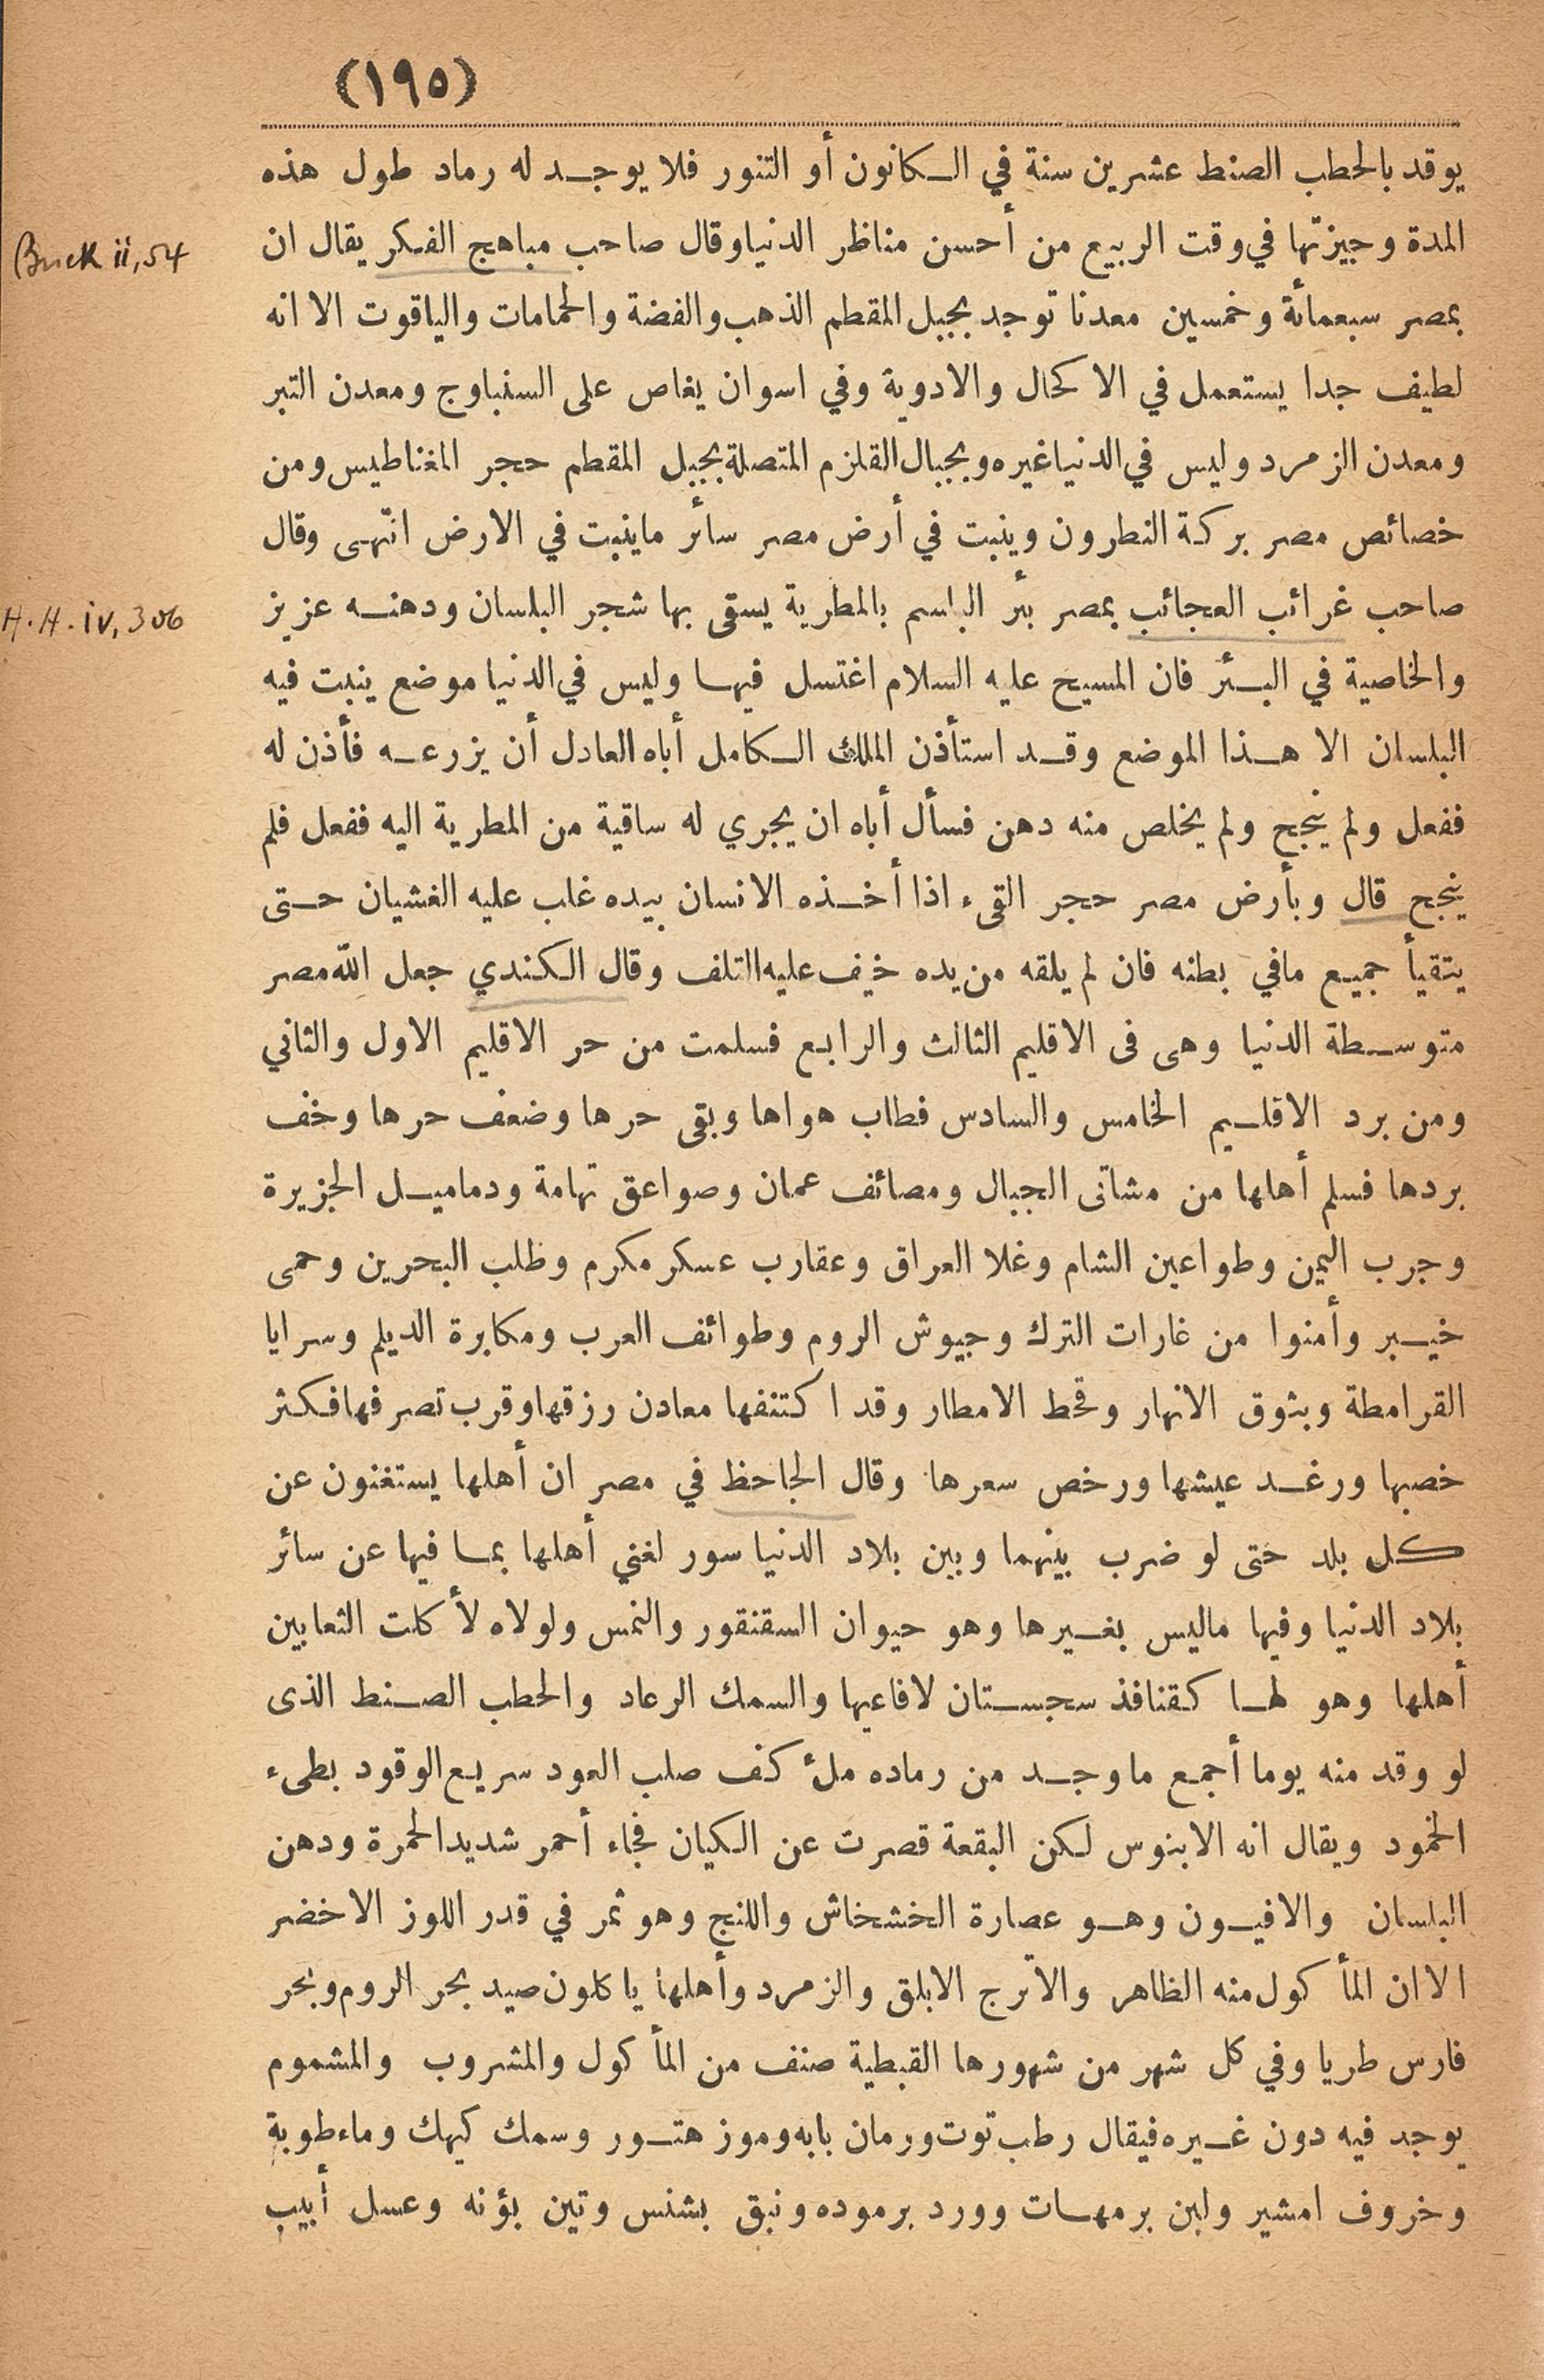 (١٩٥)
يوقد بالحطب الصنط عشرين سنة في الكانون أو التنور فلا يوجد له رماد طول هذه
المدة وجيزتها في وقت الربيع من أحسن مناظر الدنيا وقال صاحب مباهج الفكر يقال ان
Brock ii, 54
بمصر سبعمائة وخمسين معدنا توجد بجبل المقطم الذهب والفضة والحمامات والياقوت الا انه
لطيف جدا يستعمل في الاكحال والادوية وفي اسوان يغاص على السنباوج ومعدن التبر
ومعدن الزمرد وليس في الدنيا غيره وبجبال القلزم المتصلة بجبل المقطم حجر المغناطيس ومن
خصائص مصر بركة النطرون وينبت في أرض مصر سائر ماينبت في الارض انتهى وقال
صاحب غرائب العجائب بمصر بئر الباسم بالمطرية يسقى بها شجر البلسان ودهنه عزيز
H.H. iv, 306
والخاصية في البئر فان المسيح عليه السلام اغتسل فيها وليس في الدنيا موضع ينبت فيه
البلسان الا هذا الموضع وقد استأذن الملك الكامل أباه العادل أن يزرعه فأذن له
ففعل ولم ينجح ولم يخلص منه دهن فسأل أباه ان يجري له ساقية من المطرية اليه ففعل فلم
ينجح قال وبأرض مصر حجر القىء اذا أخذه الانسان بيده غلب عليه الغشيان حتى
يتقيأ جميع مافي بطنه فان لم يلقه من يده خيف عليه التلف وقال الكندي جعل الله مصر
متوسطة الدنيا وهى فى الاقليم الثالث والرابع فسلمت من حر الاقليم الاول والثاني
ومن برد الاقليم الخامس والسادس فطاب هواها وبقى حرها وضعف حرها وخف
بردها فسلم أهلها من مشاتى الجبال ومصائف عمان وصواعق تهامة ودماميل الجزيرة
وجرب اليمن وطواعين الشام وغلا العراق وعقارب عسكر مكرم وظلب البحرين وحمى
خيبر وأمنوا من غارات الترك وجيوش الروم وطوائف العرب ومكابرة الديلم وسرايا
القرامطة وبثوق الانهار وقحط الامطار وقد اكتنفها معادن رزقها وقرب تصرفها فكثر
خصبها ورغد عيشها ورخص سعرها وقال الجاحظ في مصر ان أهلها يستغنون عن
كل بلد حتى لو ضرب بينهما وبين بلاد الدنيا سور لغني أهلها بما فيها عن سائر
بلاد الدنيا وفيها ماليس بغيرها وهو حيوان السقنقور والنمس ولولاه لأكلت الثعابين
أهلها وهو لها كقنافذ سجستان لافاعيها والسمك الرعاد والحطب الصنط الذى
لو وقد منه يوما أجمع ما وجد من رماده ملء كف صلب العود سريع الوقود بطىء
الخمود ويقال انه الابنوس لكن البقعة قصرت عن الكيان فجاء أحمر شديد الحمرة ودهن
البلسان والافيون وهو عصارة الخشخاش واللنج وهو ثمر في قدر اللوز الاخضر
الا ان المأكول منه الظاهر والاترج الابلق والزمرد وأهلها ياكلون صيد بحر الروم وبحر
فارس طريا وفي كل شهر من شهورها القبطية صنف من المأكول والمشروب والمشموم
يوجد فيه دون غيره فيقال رطب توت ورمان بابه وموز هتور وسمك كيهك وماء طوبة
وخروف امشير ولبن برمهات وورد برموده ونبق بشنس وتين بؤنه وعسل أبيب